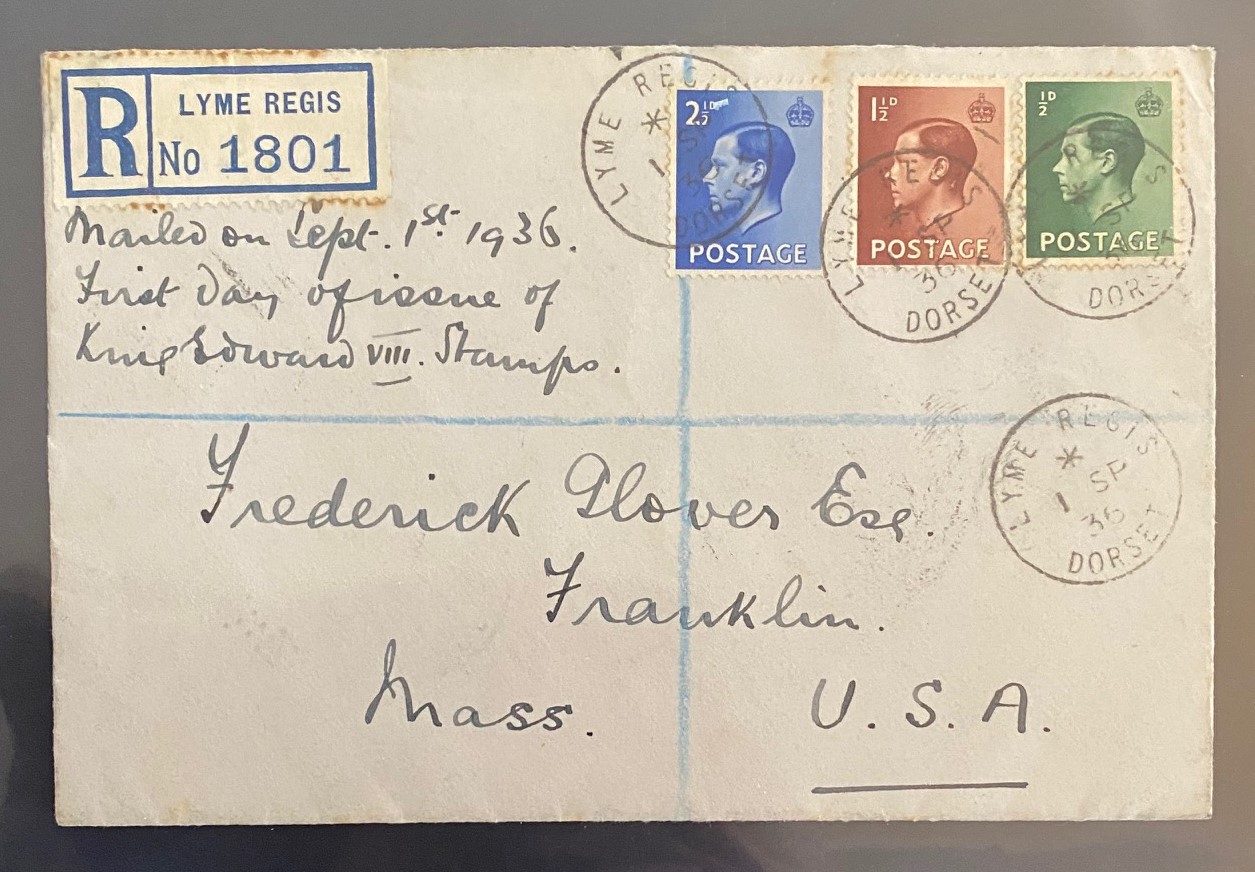 R
LYME REGIS
No 1801
Mailed on Sept. 1st 1936.
First Day of issue of
King Edward VIII. Stamps.
LYME REGIS
* 1 SP 36
DORSET
2½D
POSTAGE
1½D
POSTAGE
LYME REGIS
* SP 36
DORSET
½D
POSTAGE
* SP
DORSET
LYME REGIS
* 1 SP 36
DORSET
Frederick Glover Esq.
Franklin.
Mass.
U.S.A.